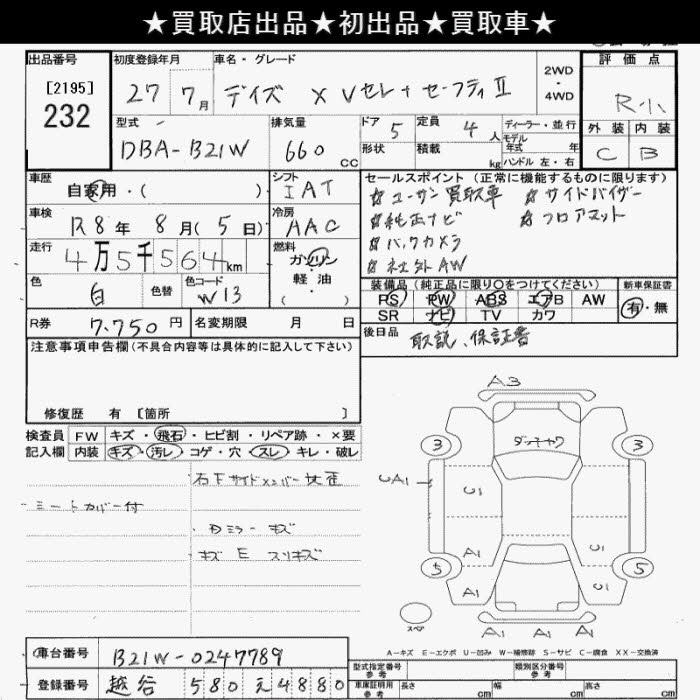 ★買取店出品★初出品★買取車★
出品番号 [2195] 232
初度登録年月 27 7月
車名・グレード デイズ X Vセレ+セーフティII
2WD・4WD
評価点 R小
外装 内装
C B
型式 DBA-B21W
排気量 660cc
ドア 5 定員 4人
形状 積載 kg
ディーラー・並行
モデル年式 年
ハンドル 左・右
車歴 自家用・( )
シフト IAT
車検 R8年 8月(5日)
冷房 AAC
走行 4万5千564km
燃料 ガソリン 軽油 ( )
色 白 色替 色コード W13
R券 7,750円 名変期限 月 日
セールスポイント(正常に機能するものに限ります)
☆ユーザー買取車 ☆サイドバイザー
☆純正ナビ ☆フロアマット
☆バックカメラ
☆社外AW
装備品(純正品に限り○をつけてください) 新車保証書
PS PW ABS エアB AW 有・無
SR ナビ TV カワ
後日品 取説、保証書
注意事項申告欄(不具合内容等は具体的に記入して下さい)
修復歴 有 [箇所 ]
検査員記入欄 FW キズ・飛石・ヒビ割・リペア跡・×要
内装 キズ・汚レ・コゲ・穴・スレ・キレ・破レ
シートカバー付
キズ E スリキズ
A3
3 3
ダッキャク
UA1 U1
A1 U
5 5
A1 U1
スペア
A1 A1 A1
A-キズ E-エクボ U-凹み W-補修跡 S-サビ C-腐食 XX-交換済
車台番号 B21W-0247789
登録番号 越谷 580 え 4880
型式指定番号 参考 類別区分番号 参考
車庫証明用 参考 長さ cm 幅 cm 高さ cm